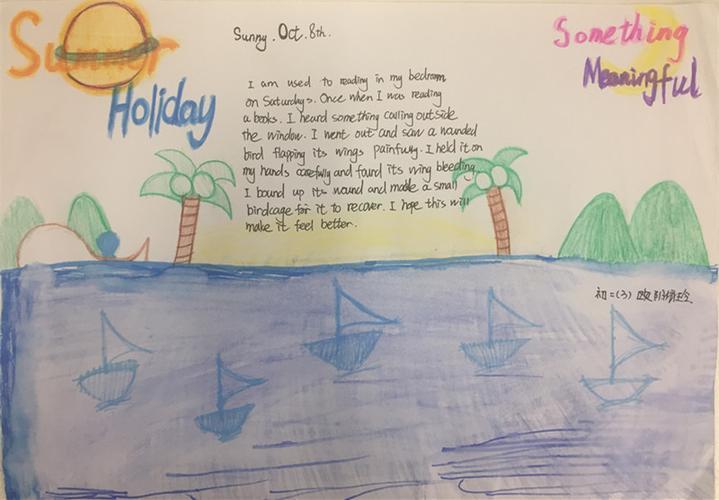 Summer
Holiday
Sunny . Oct. 8th.
Something
Meaningful
I am used to reading in my bedroom
on Saturdays. Once when I was reading
a books. I heard something calling outside
the window. I went out and saw a wounded
bird flapping its wings painfully. I held it on
my hands carefully and found its wing bleeding.
I bound up its wound and made a small
birdcage for it to recover. I hope this will
make it feel better.
初二(3)